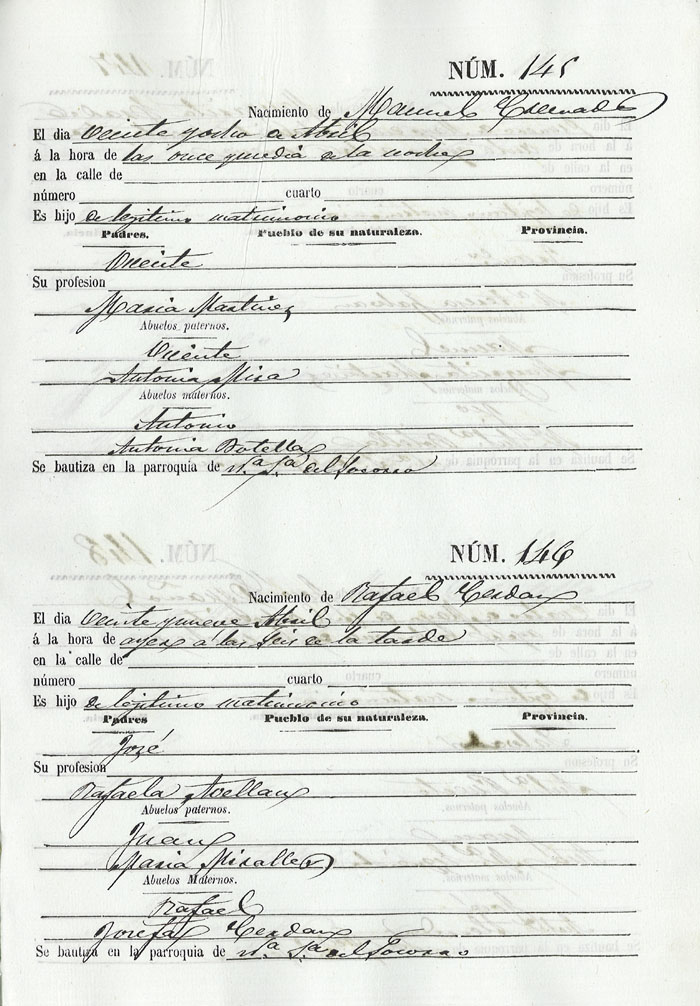 NÚM. 145
Nacimiento de Manuel
El dia Veinte y ocho de Abril
á la hora de las once y media de la noche
en la calle de
número cuarto
Es hijo de legitimo matrimonio
Padres. Pueblo de su naturaleza. Provincia.
Vicente
Su profesion
Maria Martinez
Abuelos paternos.
Vicente
Antonia Mira
Abuelos maternos.
Antonio
Antonia Botella
Se bautiza en la parroquia de Nª Sª del Socorro
NÚM. 146
Nacimiento de Rafael Cerdan
El dia Veinte y nueve Abril
á la hora de ayer á las seis de la tarde
en la calle de
número cuarto
Es hijo de legitimo matrimonio
Padres Pueblo de su naturaleza. Provincia.
José
Su profesion
Rafaela Avellan
Abuelos paternos.
Juan
Maria Miralles
Abuelos Maternos.
Rafael
Josefa Cerdan
Se bautiza en la parroquia de Nª Sª del Socorro